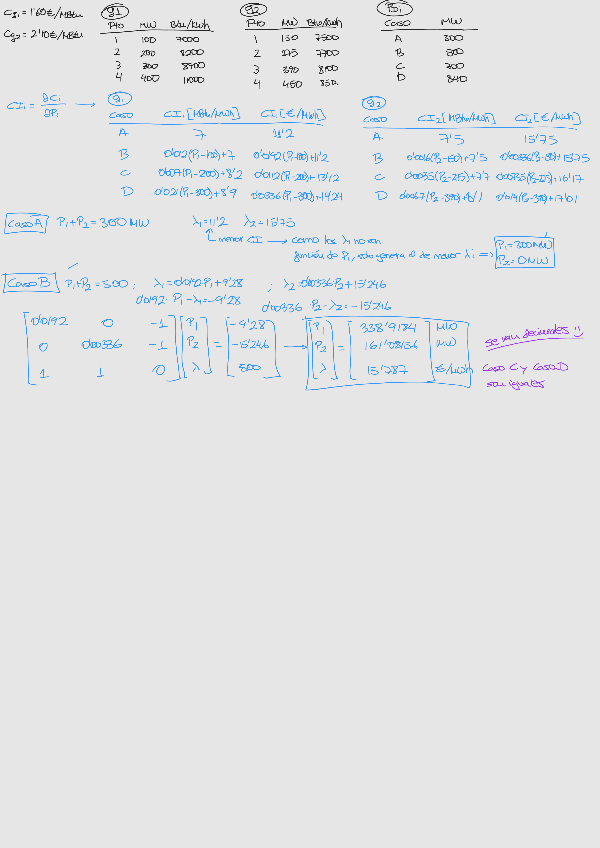 Cg1 = 1'60€/MBtu
Cg2 = 2'10€/MBtu
g1
Pto MW Btu/kWh
1 100 7000
2 200 8200
3 300 8900
4 400 11000
g2
Pto MW Btu/kWh
1 150 7500
2 275 7700
3 390 8100
4 450 8500
PD1
Caso MW
A 300
B 500
C 700
D 840
CIi = ∂Ci/∂Pi →
g1
Caso CI1[MBtu/MWh] CI1[€/MWh]
A 7 11'2
B 0'012(P1-100)+7 0'0192(P1-100)+11'2
C 0'007(P1-200)+8'2 0'0112(P1-200)+13'12
D 0'021(P1-300)+8'9 0'0336(P1-300)+14'24
g2
Caso CI2[MBtu/MWh] CI2[€/MWh]
A 7'5 15'75
B 0'0016(P2-150)+7'5 0'00336(P2-150)+15'75
C 0'0035(P2-275)+7'7 0'00735(P2-275)+16'17
D 0'0067(P2-390)+8'1 0'014(P2-390)+17'01
Caso A P1+P2 = 300 MW λ1=11'2 λ2=15'75
menor CI → como los λ no van
función de Pi, sólo genera el de menor λi ⇒
P1=300MW
P2=0MW
Caso B P1+P2 = 500; λ1=0'0192P1+9'28 ; λ2=0'00336P2+15'246
0'0192·P1-λ=-9'28
0'00336·P2-λ2=-15'246
0'0192 0 -1 P1 -9'28 P1 338'9184 MW
0 0'00336 -1 P2 = -15'246 → P2 = 161'08156 MW
1 1 0 λ 500 λ 15'787 €/MWh
se van decimales
Caso C y Caso D
son iguales